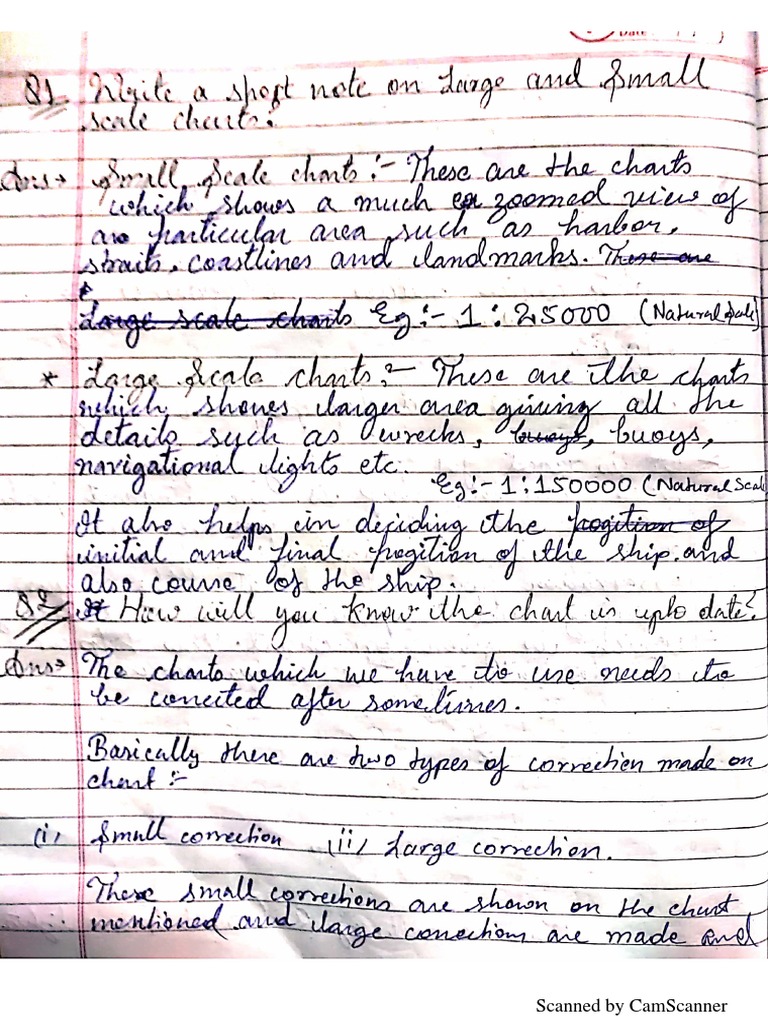 Date
Q1 Write a short note on Large and Small
scale charts.
Ans→ Small Scale charts :- These are the charts
which shows a much zoomed view of
particular area such as harbor,
straits, coastlines and landmarks. These are
Large scale charts Eg:- 1:25000 (Natural Scale)
* Large Scale charts :- These are the charts
which shows larger area giving all the
details such as wrecks, buoys, buoys,
navigational lights etc.
Eg:- 1:150000 (Natural Scale
It also helps in deciding the pogition of
initial and final pogition of the ship. and
also course of the ship.
Q2 It How will you know the chart is upto date?
Ans→ The charts which we have to use needs to
be corrected after sometimes.
Basically there are two types of correction made on
chart :-
(i) Small correction (ii) Large correction.
These small corrections are shown on the chart
mentioned and large corrections are made and
Scanned by CamScanner